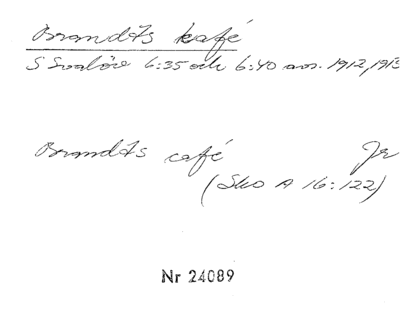 Brandts kafé
S Svalöv 6:35 och 6:40 m. 1912, 1913
Brandts café Jr
(Sko A 16:122)
Nr 24089